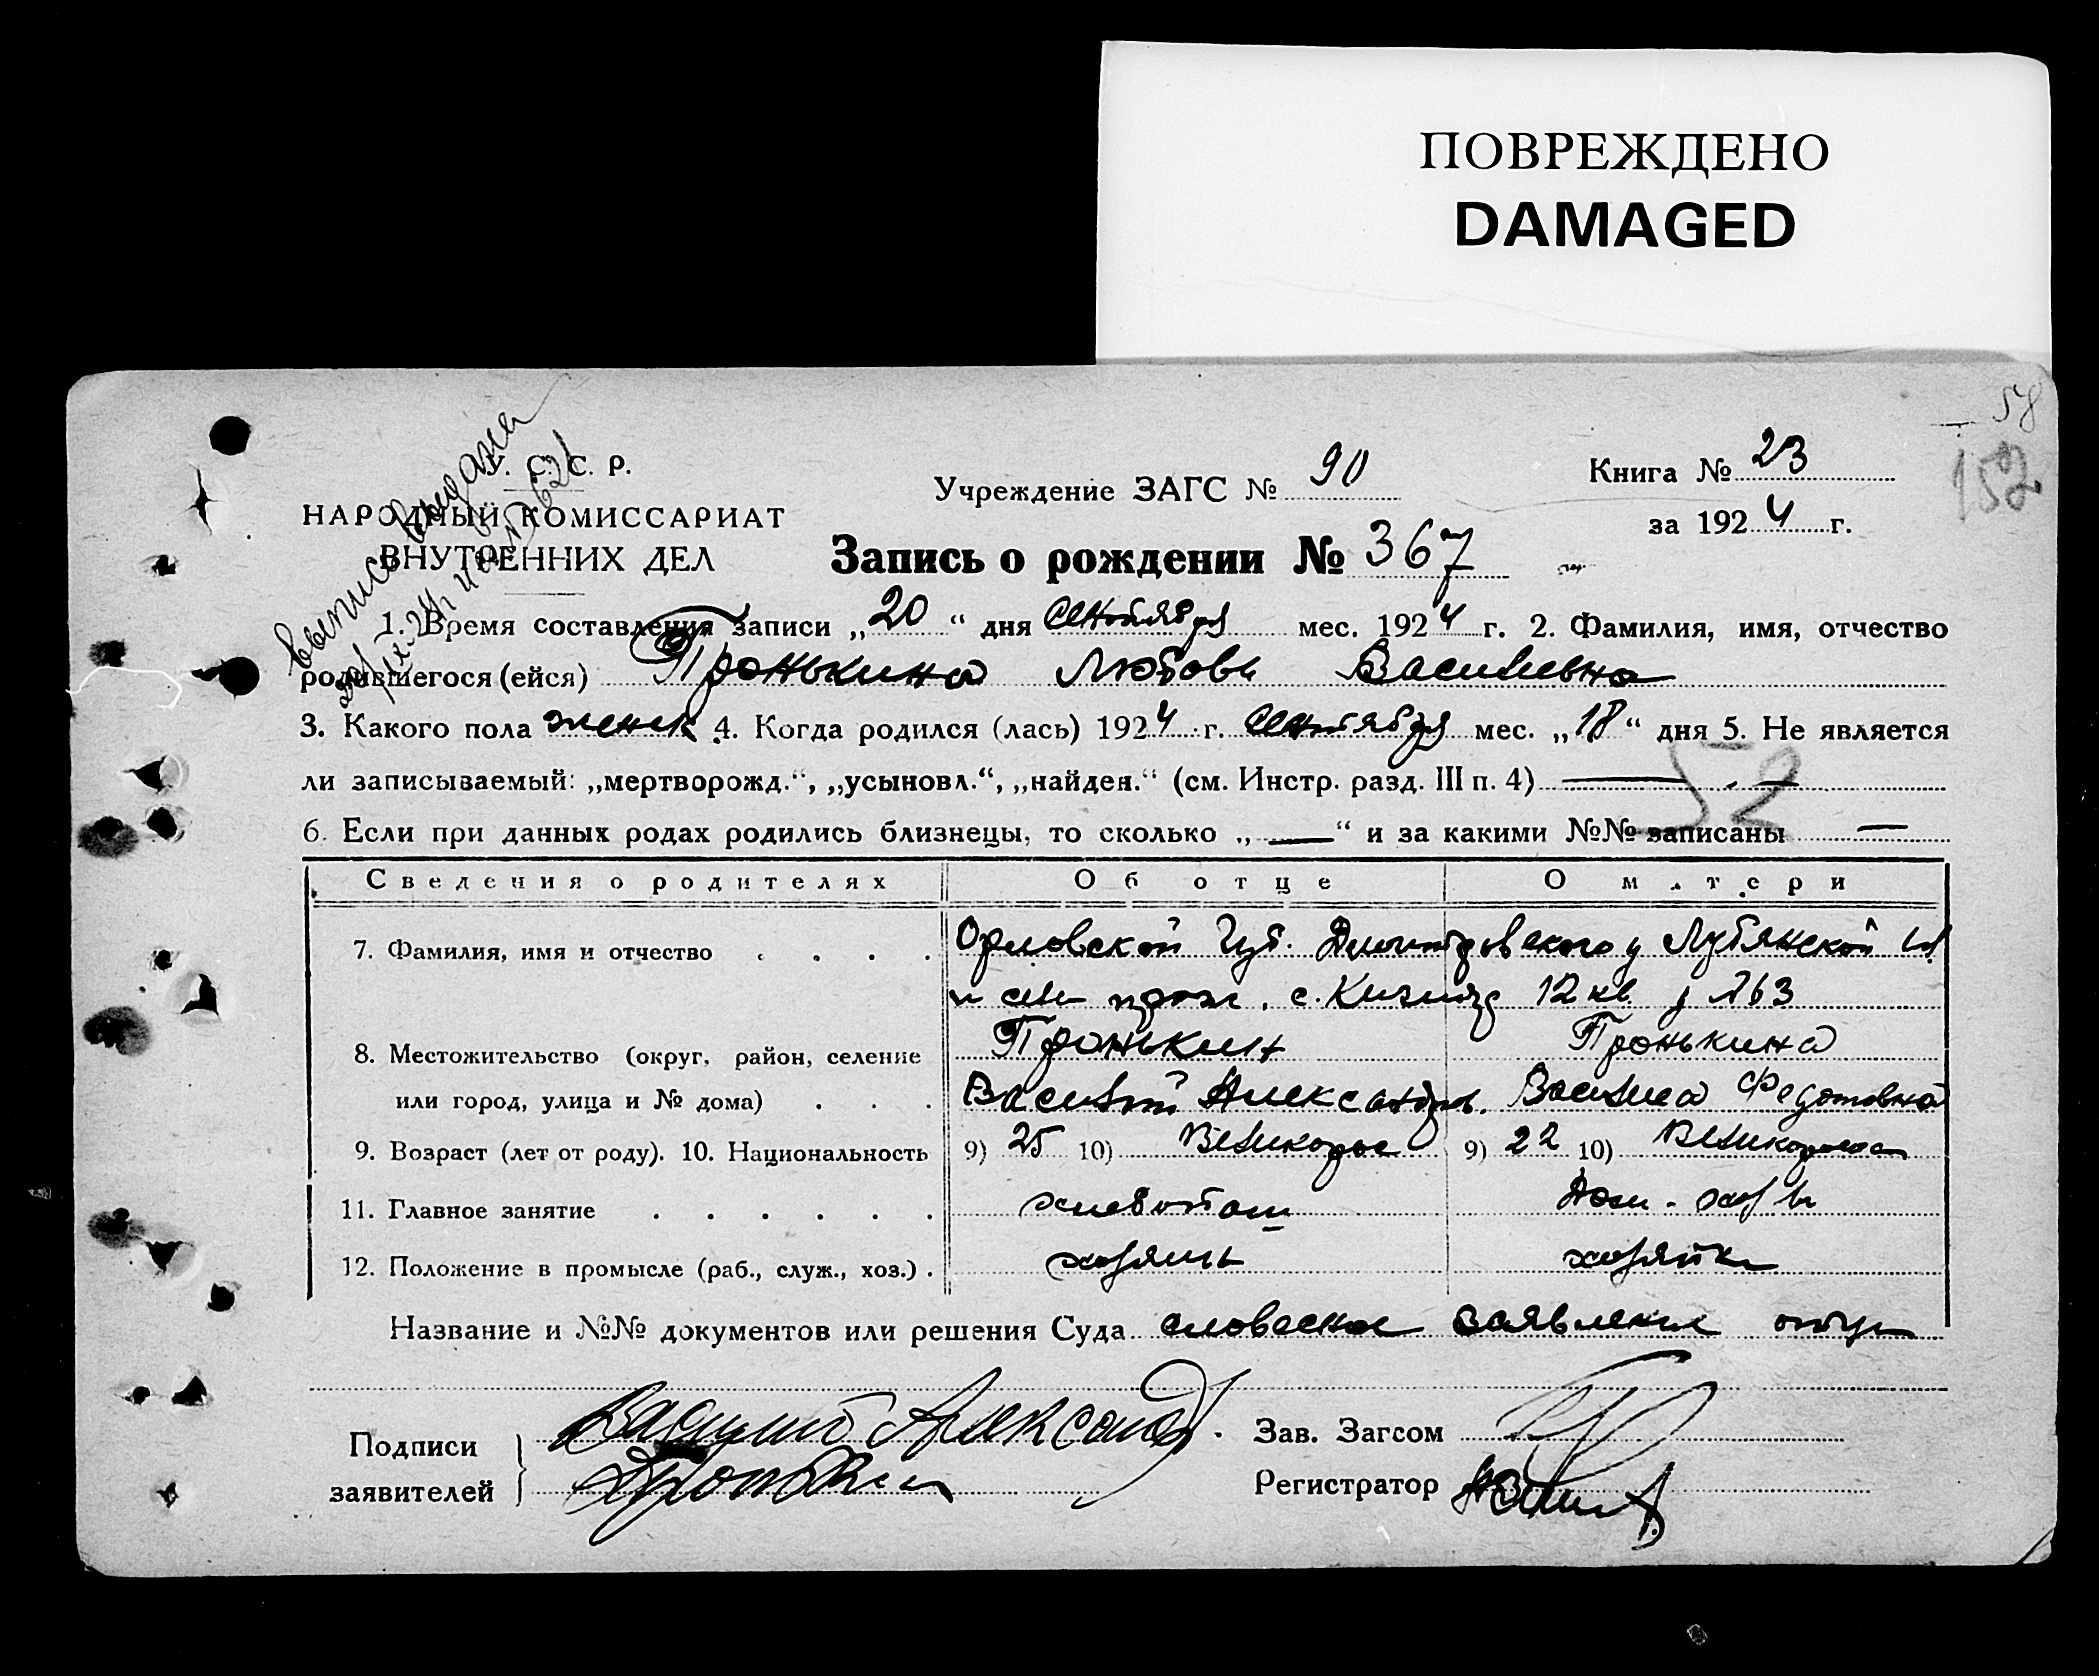 ПОВРЕЖДЕНО
DAMAGED
58
152
выпись выдана
С. С. Р.
НАРОДНЫЙ КОМИССАРИАТ
ВНУТРЕННИХ ДЕЛ
Учреждение ЗАГС № 90
Книга № 23
за 1924 г.
Запись о рождении № 367
1. Время составления записи „20“ дня сентября мес. 1924 г. 2. Фамилия, имя, отчество
родившегося (ейся) Пронькина Любовь Васильевна
3. Какого пола женск 4. Когда родился (лась) 1924 г. сентября мес. „18“ дня 5. Не является
ли записываемый: „мертворожд.“, „усыновл.“, „найден.“ (см. Инстр. разд. III п. 4) —
52
6. Если при данных родах родились близнецы, то сколько „—“ и за какими №№ записаны —
Сведения о родителях Об отце О матери
7. Фамилия, имя и отчество . . . . Орловской Губ. Дмитровского у Лубянской
с. 12 кв
8. Местожительство (округ, район, селение Пронькин Пронькина
или город, улица и № дома) . . . Василий Александр. Василиса Федотовна
9. Возраст (лет от роду). 10. Национальность 9) 25 10) Великорос 9) 22 10) Великоросса
11. Главное занятие . . . . . . хлебопаш Дом. хоз-ва
12. Положение в промысле (раб., служ., хоз.) . хозяин хозяйка
Название и №№ документов или решения Суда словесное заявление отца
Подписи Василий Александ. Зав. Загсом
заявителей Пронькин Регистратор